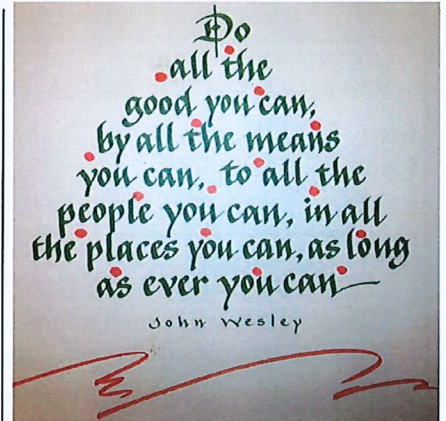 Do
all the
good you can,
by all the means
you can, to all the
people you can, in all
the places you can, as long
as ever you can
John Wesley